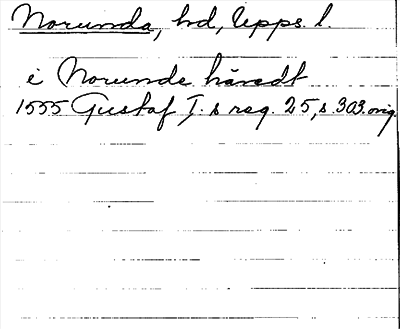 Norunda, hd, Upps. l.
i Norunde häredt
1555 Gustaf I. s reg. 25, s. 303. orig.